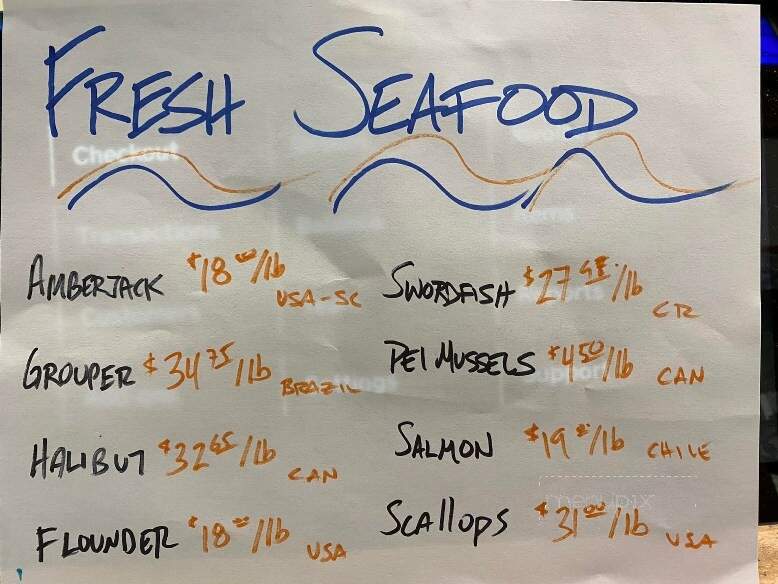 FRESH SEAFOOD
Checkout
Transactions
AMBERJACK $18 00/lb USA-SC
GROUPER $34 75/lb BRAZIL
Settings
HALIBUT $32 65/lb CAN
FLOUNDER $18 00/lb USA
Items
SWORDFISH $27 /lb CR
Reports
PEI MUSSELS $4 50/lb CAN
Support
SALMON $19 00/lb CHILE
menupix
SCALLOPS $31 00/lb USA